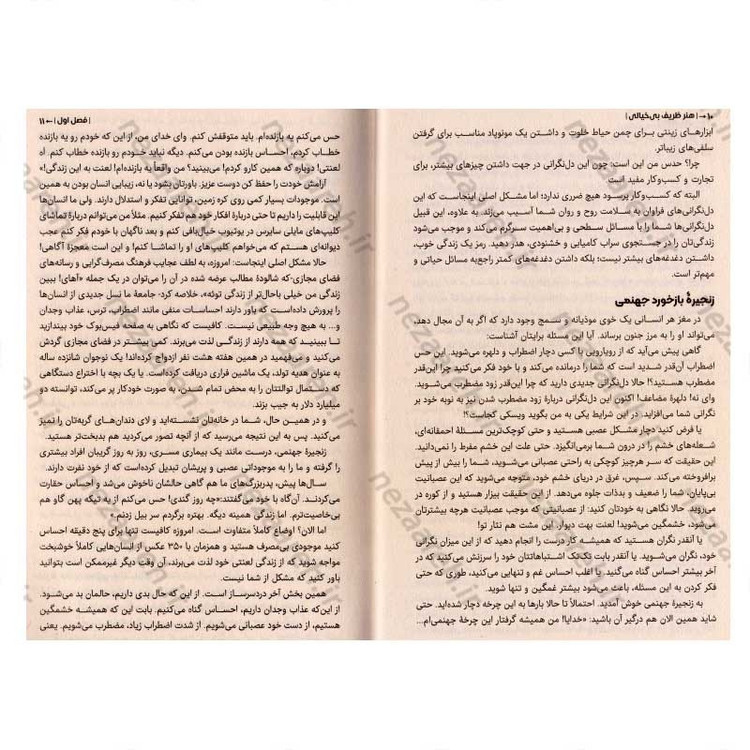 ۱۰ → | هنر ظریف بی‌خیالی |
ابزارهای زینتی برای چمن حیاط خلوت و داشتن یک مونوپاد مناسب برای گرفتن
سلفی‌های زیباتر.
چرا؟ حدس من این است: چون این دل‌نگرانی در جهت داشتن چیزهای بیشتر، برای
تجارت و کسب‌وکار مفید است
البته که کسب‌وکار پرسود هیچ ضرری ندارد؛ اما مشکل اصلی اینجاست که این
دل‌نگرانی‌های فراوان به سلامت روح و روان شما آسیب می‌زند. به علاوه، این قبیل
دل‌نگرانی‌ها شما را با مسائل سطحی و بی‌اهمیت سرگرم می‌کند و موجب می‌شود
زندگی‌تان را در جستجوی سراب کامیابی و خشنودی، هدر دهید. رمز یک زندگی خوب،
داشتن دغدغه‌های بیشتر نیست؛ بلکه داشتن دغدغه‌های کمتر راجع‌به مسائل حیاتی و
مهم‌تر است.
زنجیرهٔ بازخورد جهنمی
در مغز هر انسانی یک خوی موذیانه و سمج وجود دارد که اگر به آن مجال دهد،
می‌تواند او را به مرز جنون برساند. آیا این مسئله برایتان آشناست:
گاهی پیش می‌آید که از رویارویی با کسی دچار اضطراب و دلهره می‌شوید. این حس
اضطراب آن‌قدر شدید است که شما را درمانده می‌کند و با خود فکر می‌کنید چرا این‌قدر
مضطرب هستید؟! حالا نگرانی جدیدی دارید که چرا این‌قدر زود مضطرب می‌شوید.
وای نه! دلهره مضاعف! اکنون این دل‌نگرانی دربارهٔ زود مضطرب شدن نیز به نوبه خود بر
نگرانی شما می‌افزاید. در این شرایط یکی به من بگوید ویسکی کجاست؟!
یا فرض کنید دچار مشکل عصبی هستید و حتی کوچک‌ترین مسئلهٔ احمقانه‌ای،
شعله‌های خشم را در درون شما برمی‌انگیزد. حتی علت این خشم مفرط را نمی‌دانید.
این حقیقت که سر هرچیز کوچکی به راحتی عصبانی می‌شوید، شما را بیش از پیش
برافروخته می‌کند. سپس، غرق در دریای خشم خود، متوجه می‌شوید که این عصبانیت
بی‌پایان، شما را ضعیف و بدذات جلوه می‌دهد. از این حقیقت بیزار هستید و از کوره در
می‌روید. حالا نگاهی به خودتان کنید: از عصبانیتی که موجب عصبانیت هرچه بیشترتان
می‌شود، خشمگین می‌شوید! لعنت بهت دیوار. این مشت هم نثار تو!
یا آنقدر نگران هستید که همیشه کار درست را انجام دهید که از این میزان نگرانی
خود، نگران می‌شوید. یا آنقدر بابت تک‌تک اشتباهاتتان خود را سرزنش می‌کنید که در
آخر بیشتر احساس گناه می‌کنید. یا اغلب احساس غم و تنهایی می‌کنید، طوری که حتی
فکر کردن به این مسئله، باعث می‌شود بیشتر غمگین و تنها شوید.
به زنجیرهٔ جهنمی خوش آمدید. احتمالاً تا حالا بارها به این چرخه دچار شده‌اید. حتی
شاید همین الان هم درگیر آن باشید: «خدایا! من همیشه گرفتار این چرخهٔ جهنمی‌ام...
| فصل اول | ← ۱۱
حس می‌کنم یه بازنده‌ام. باید متوقفش کنم. وای خدای من، از این که خودم رو یه بازنده
خطاب کردم، احساس بازنده بودن می‌کنم. دیگه نباید خودم رو بازنده خطاب کنم. اه
لعنتی! دوباره که همین کارو کردم! می‌بینید؟ من واقعاً یه بازنده‌ام! لعنت به این زندگی!»
آرامش خودت را حفظ کن دوست عزیز. باورتان بشود یا نه، زیبایی انسان بودن به همین
است. موجودات بسیار کمی روی کره زمین، توانایی تفکر و استدلال دارند. ولی ما انسان‌ها
این قابلیت را داریم تا حتی دربارهٔ افکار خود هم تفکر کنیم. مثلاً من می‌توانم دربارهٔ تماشای
کلیپ‌های مایلی سایرس در یوتیوب خیال‌بافی کنم و بعد ناگهان با خودم فکر کنم عجب
دیوانه‌ای هستم که می‌خواهم کلیپ‌های او را تماشا کنم! و این است معجزهٔ آگاهی!
حالا مشکل اصلی اینجاست: امروزه، به لطف عجایب فرهنگ مصرف‌گرایی و رسانه‌های
فضای مجازی-که شالودهٔ مطالب عرضه شده در آن را می‌توان در یک جمله «آهای! ببین
زندگی من خیلی باحال‌تر از زندگی توئه»، خلاصه کرد- جامعهٔ ما نسل جدیدی از انسان‌ها
را پرورش داده‌است که باور دارند احساسات منفی مانند اضطراب، ترس، عذاب وجدان
و... به هیچ وجه طبیعی نیست. کافیست که نگاهی به صفحه فیس‌بوک خود بیندازید
تا ببینید که همه دارند از زندگی لذت می‌برند. کمی بیشتر در فضای مجازی گردش
می‌کنید و می‌فهمید در همین هفته هشت نفر ازدواج کرده‌اند! یک نوجوان شانزده ساله
به عنوان هدیه تولد، یک ماشین فراری دریافت کرده‌است. یا یک بچه با اختراع دستگاهی
که دستمال توالتتان را به محض تمام شدن، به صورت خودکار پر می‌کند، توانسته دو
میلیارد دلار به جیب بزند.
و در همین حال، شما در خانه‌تان نشسته‌اید و لای دندان‌های گربه‌تان را تمیز
می‌کنید. پس به این نتیجه می‌رسید که از آنچه تصور می‌کردید هم بدبخت‌تر هستید.
زنجیرهٔ جهنمی، درست مانند یک بیماری مسری، روز به روز گریبان افراد بیشتری
را گرفته و ما را به موجوداتی عصبی و پریشان تبدیل کرده‌است که از خود نفرت دارند.
سال‌ها پیش، پدربزرگ‌های ما هم گاهی حالشان ناخوش می‌شد و احساس حقارت
می‌کردند. آن‌گاه با خود می‌گفتند:«چه روز گندی! حس می‌کنم از یه تیکه پهن گاو هم
بی‌خاصیت‌ترم. اما زندگی همینه دیگه. بهتره برگردم سر بیل زدنم.»
اما الان؟ اوضاع کاملاً متفاوت است. امروزه کافیست تنها برای پنج دقیقه احساس
کنید موجودی بی‌مصرف هستید و همزمان با ۳۵۰ عکس از انسان‌هایی کاملاً خوشبخت
مواجه شوید که از زندگی لعنتی خود لذت می‌برند، آن وقت دیگر غیرممکن است بتوانید
باور کنید که مشکل از شما نیست.
همین بخش آخر دردسرساز است. از این که حال بدی داریم، حالمان بد می‌شود.
از این‌که عذاب وجدان داریم، احساس گناه می‌کنیم. بابت این که همیشه خشمگین
هستیم، از دست خود عصبانی می‌شویم. از شدت اضطراب زیاد، مضطرب می‌شویم. یعنی
nezaabeh.ir